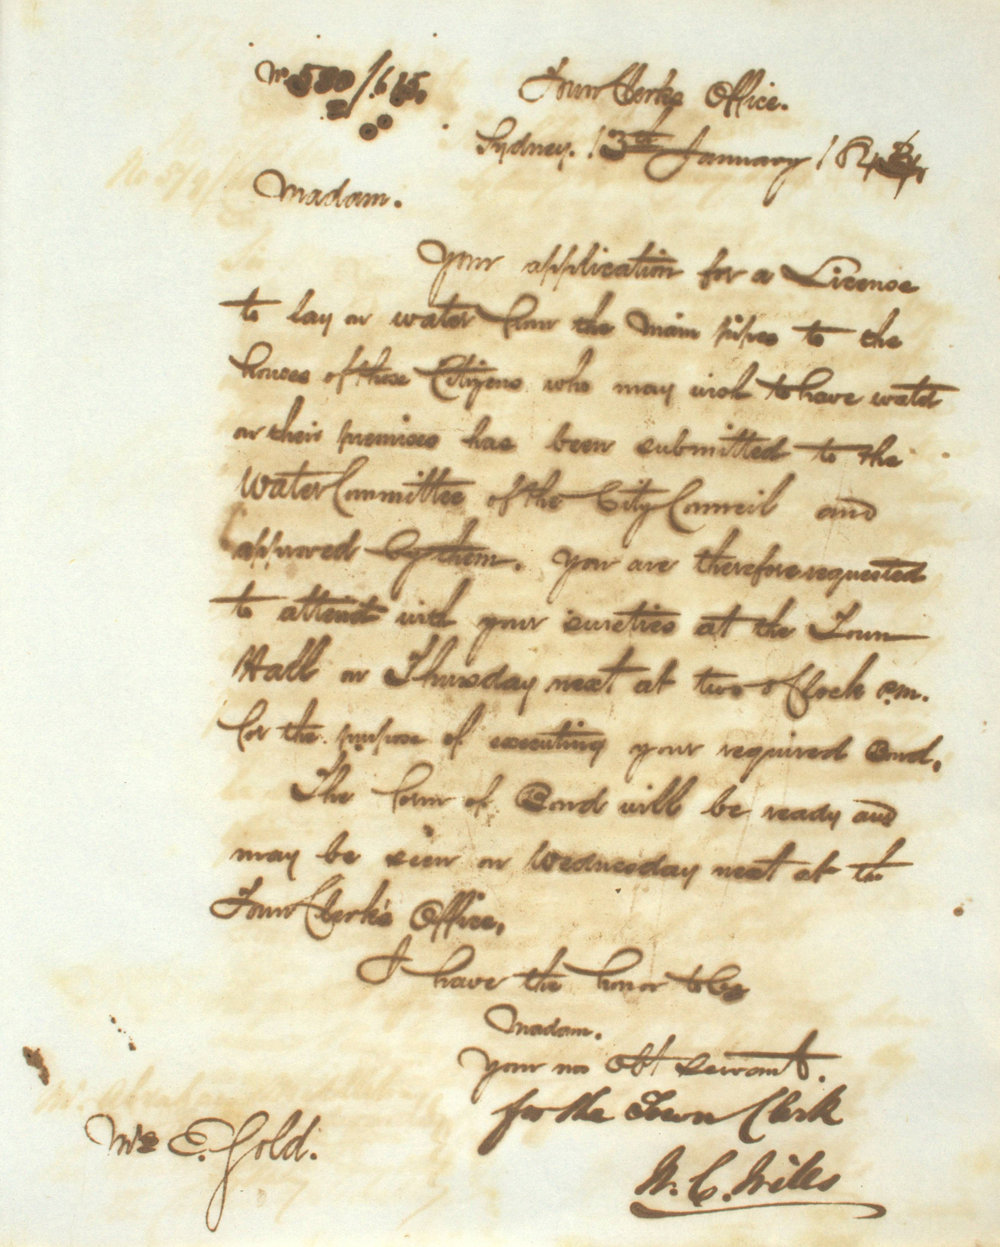 Town Clerks Office.
Sydney. 13th January 184
Madam.
Your application for a License
to lay on water from the Main pipes to the
houses of those Citizens who may wish to have water
on their premises has been submitted to the
Water Committee of the City Council and
approved by them. You are therefore requested
to attend with your sureties at the Town
Hall on Thursday next at two o'Clock p.m.
for the purpose of executing your required Bond.
The form of Bond will be ready and
may be seen on Wednesday next at the
Town Clerk's Office.
I have the honor to be
Madam.
Your mo Obt servant.
for the Town Clerk
W. C. Wills
Mrs E. Gold.